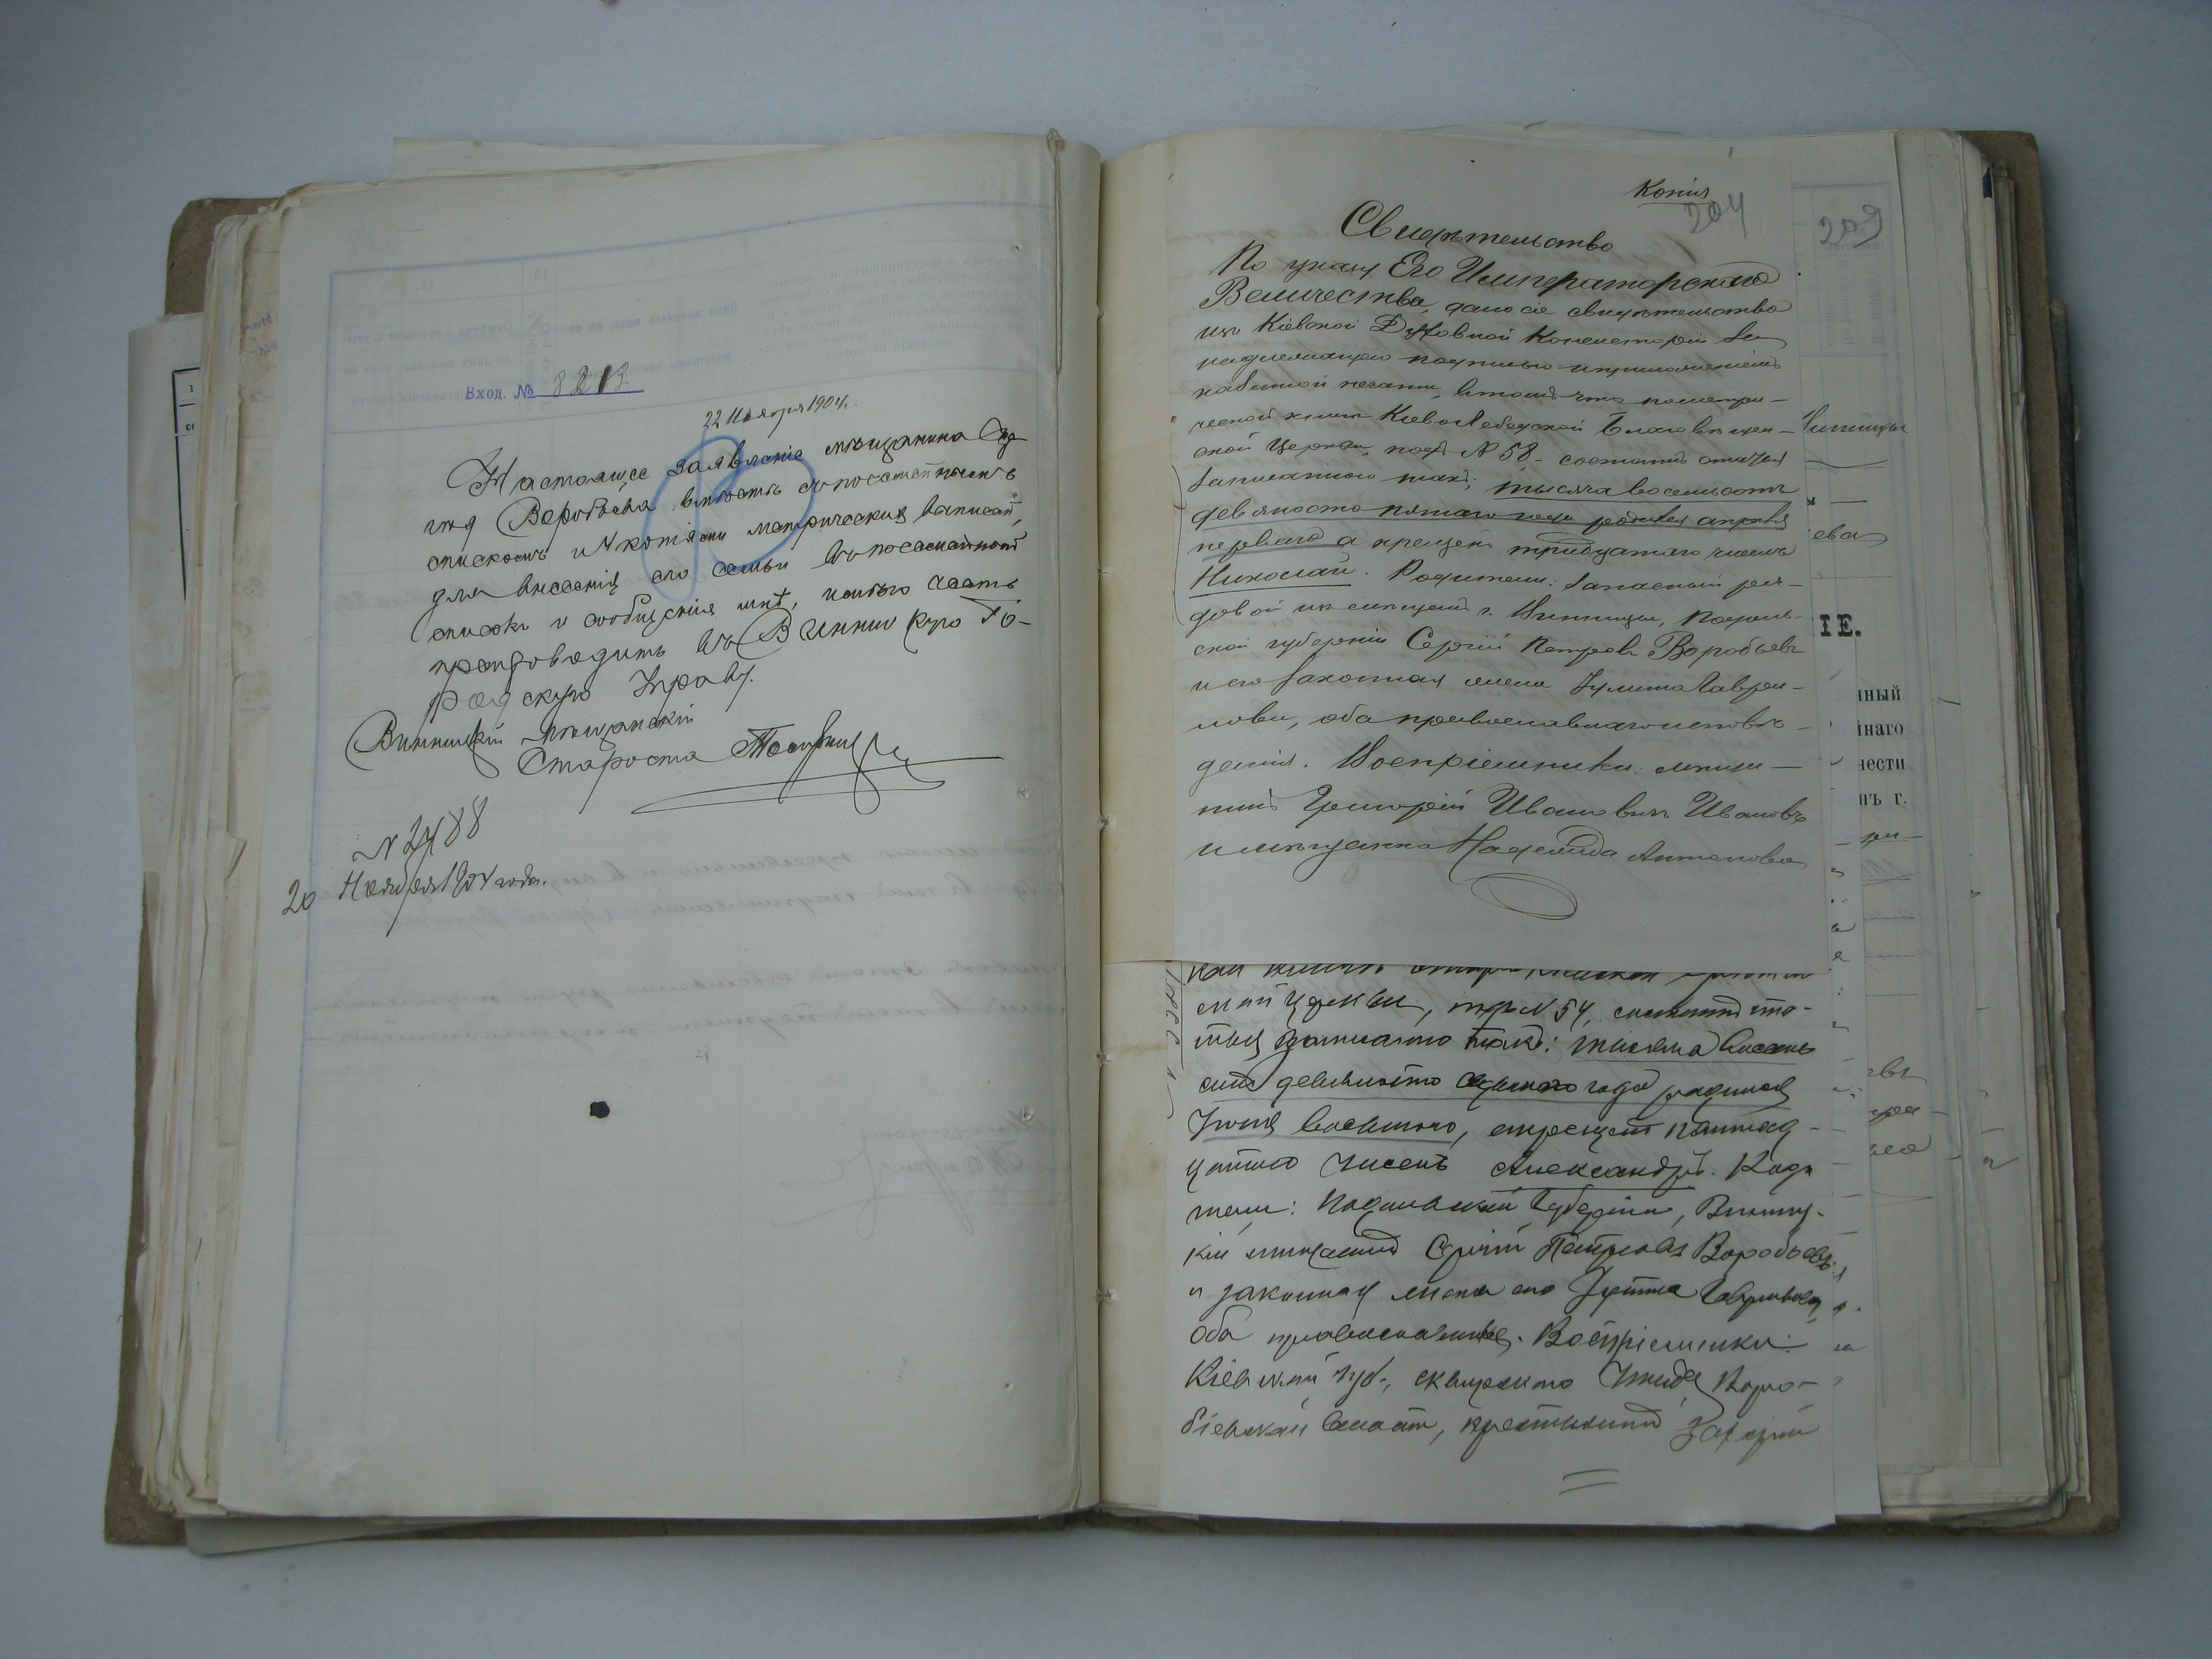 Вход. № 8213
22 Ноября 1904 г.
Настоящее заявленіе мѣщанина Сер
гѣя Воробьева вмѣстѣ съ посемейнымъ
спискомъ и 4 копіями метрическихъ записей,
для внесенія его семьи въ посемейный
списокъ и сообщенія мнѣ, имѣю честь
препроводить въ Винницкую Го-
родскую Управу.
Винницкій Мѣщанскій
Староста
N 2488
20 Ноября 1904 года.
Копія
204
209
Свидѣтельство
По указу Его Императорскаго
Величества, дано сіе свидѣтельство
изъ Кіевской Духовной Консисторіи за
надлежащею подписью и приложеніемъ
казенной печати, въ томъ что по метри-
ческой книгѣ Кіево Лебедской Благовѣщен-
ской Церкви, подъ № 58 состоитъ статья
записанною такъ: тысяча восемьсотъ
девяносто пятаго года родился апрѣля
перваго а крещенъ тридцатаго числъ
Николай. Родители: запасный ря-
довой изъ мѣщанъ г. Винницы, Подоль-
ской губерніи Сергій Петровъ Воробьевъ
и его законная жена Іулита Гаври-
лова, оба православнаго исповѣ-
данія. Воспріемники: мѣща-
нинъ Григорій Ивановичъ Ивановъ
и мѣщанка Надежда Антонова
Винницы
ева
ІЕ.
ской церкви, подъ N 54, состоитъ ста-
тья записано такъ: тысяча восемь
сотъ девяносто седьмого года родился
Іюня восьмого, а крещенъ пятнад-
цатаго чиселъ Александръ. Роди
тели: Подольской губерніи, Винниц-
кій мѣщанинъ Сергій Петровъ Воробьевъ
и законная жена его Іулита Гаврилова,
оба православные. Воспріемники:
Кіевской губ., сквирскаго уѣзда, Воро-
біевской волости, крестьянинъ